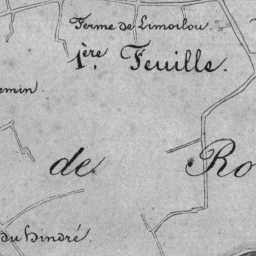 Ferme de Limoilou.
1ère Feuille.
emin.
de Ro
du Hindré.